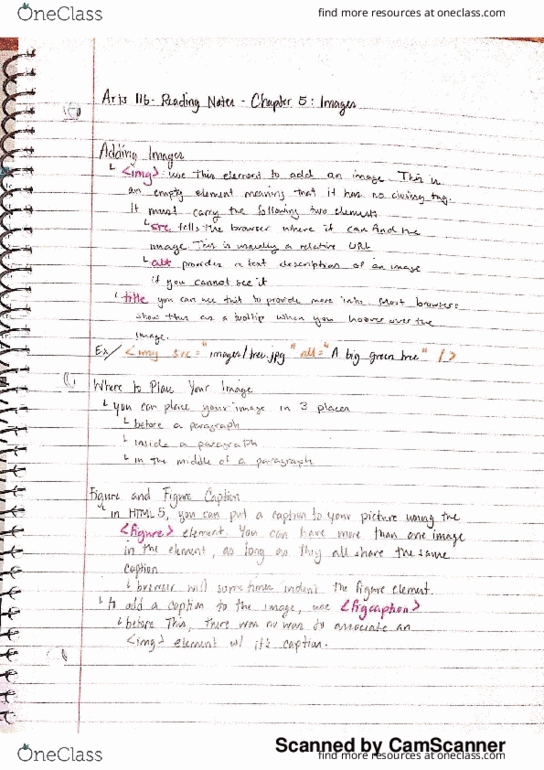 OneClass
find more resources at oneclass.com
Arts 116- Reading Notes - Chapter 5: Images
Adding Images
<img> use this element to add an image. This is
an empty element meaning that it has no closing tag.
It must carry the following two elements
src tells the browser where it can find the
image. This is usually a relative URL
alt provides a text description of an image
if you cannot see it
title you can use this to provide more info. Most browsers
show this as a tooltip when you hoover over the
image.
Ex/ <img src="images/tree.jpg" alt="A big green tree" />
Where to Place Your Image
you can place your image in 3 places
before a paragraph
inside a paragraph
in the middle of a paragraph
Figure and Figure Caption
in HTML5, you can put a caption to your picture using the
<figure> element. You can have more than one image
in the element, as long as they all share the same
caption
browser will sometimes indent the figure element.
to add a caption to the image, use <figcaption>
before this, there was no way to associate an
<img> element w/ it's caption.
Scanned by CamScanner
OneClass
find more resources at oneclass.com